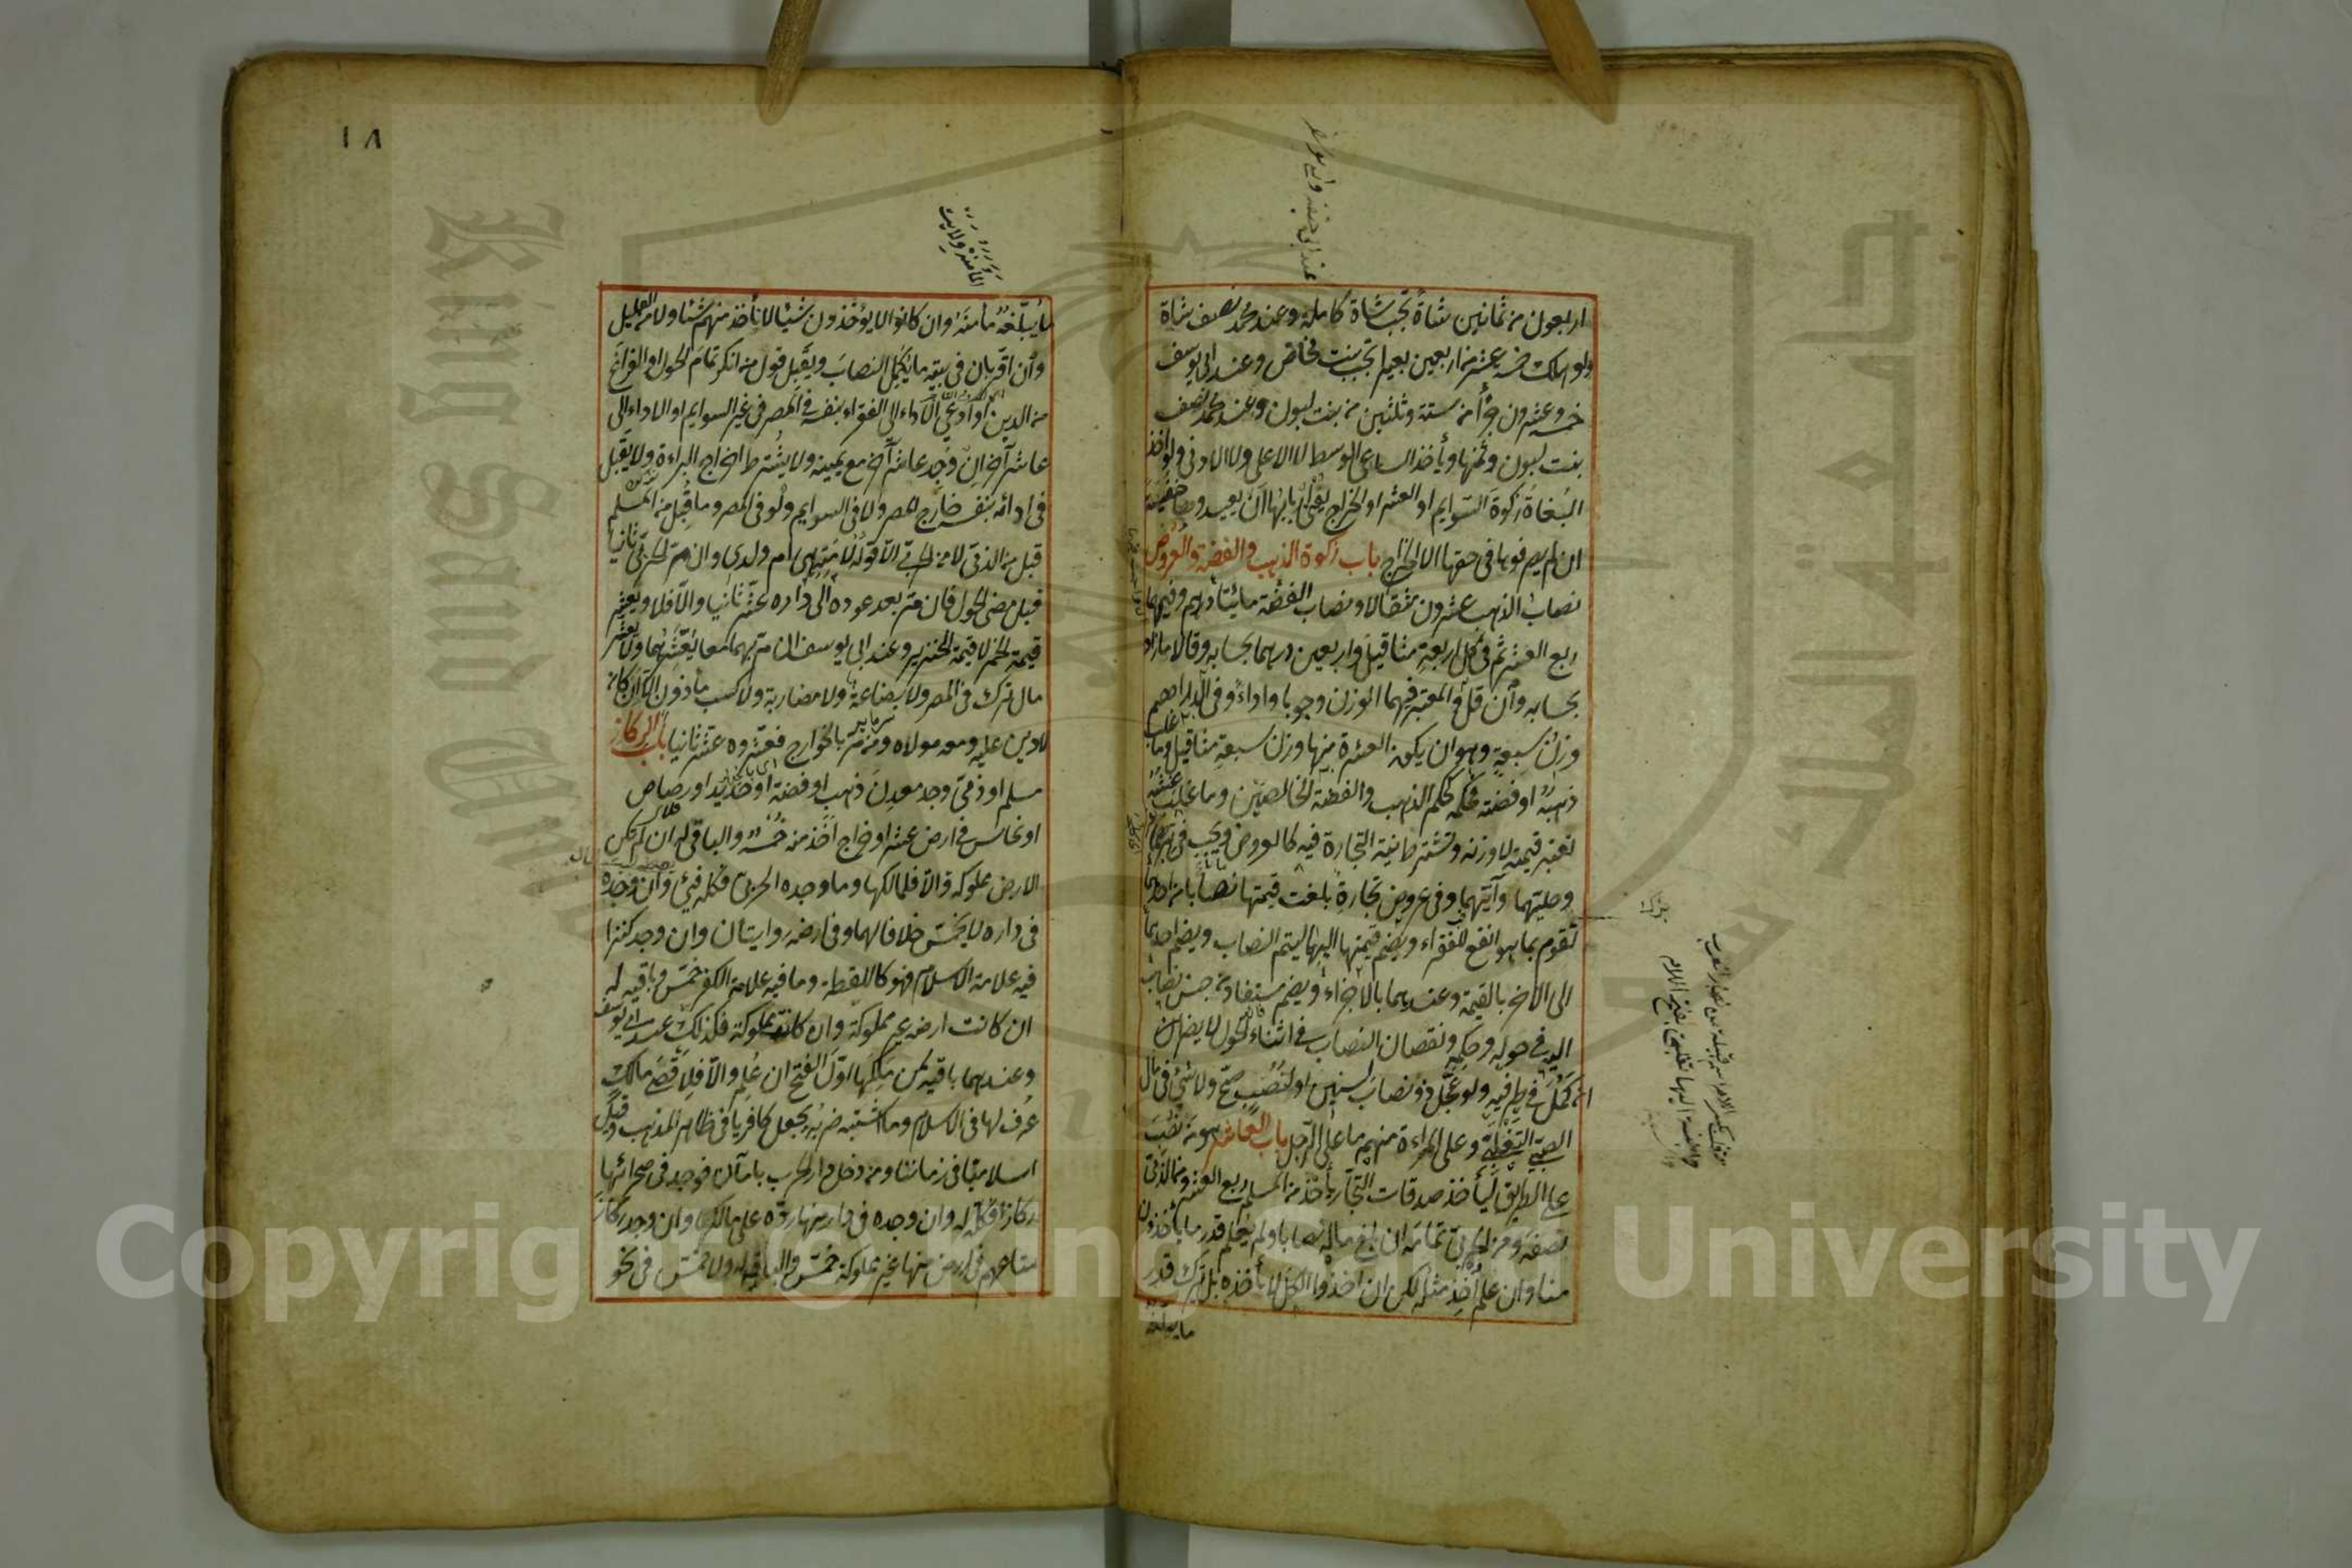 اربعون من ثمانين شاة تجب شاة كاملة وعند محمد نصف شاة
ولو هلك خمسة عشر من اربعين بعيرا تجب بنت مخاض وعند ابى يوسف
خمسة وعشرون جزأ من ستة وثلثين من بنت لبون وعند محمد نصف
بنت لبون وثمنها ويأخذ الساعى الوسط لا الاعلى ولا الادنى ولو اخذ
البغاة زكوة السوايم او العشر او الخراج يفتى اربابها ان يعيدوها خفية
ان لم يصرفوها فى حقها الا الخراج باب زكوة الذهب والفضة والعروض
نصاب الذهب عشرون مثقالا ونصاب الفضة مائتا درهم وفيهما
ربع العشر ثم فى كل اربعة مثاقيل واربعين درهما بحسابه وقالا ما زاد
بحسابه وان قل والمعتبر فيهما الوزن وجوبا واداء وفى الدراهم
وزن سبعة وهو ان يكون العشرة منها وزن سبعة مثاقيل وما غلب
ذهبه او فضته فحكمه حكم الذهب والفضة الخالصين وما غلب غشه
تعتبر قيمته لا وزنه وتشترط نية التجارة فيه كالعروض ويجب فى تبرهما
وحليتهما وآنيتهما وفى عروض تجارة بلغت قيمتها نصابا من احدهما
تقوم بما هو انفع للفقراء ويضم قيمتها اليهما ليتم النصاب ويضم احدهما
الى الاخر بالقيمة وعندهما بالاجزاء ويضم مستفاد من جنس نصاب
اليه فى حوله وحكمه ونقصان النصاب فى اثناء الحول لا يضر ان
كمل فى طرفيه ولو عجل ذو نصاب لسنين او لنصب صح ولا شئ فى مال
الصبى التغلبى وعلى المراءة منهم ما على الرجل باب العاشر هو من نصب
على الطريق ليأخذ صدقات التجار يأخذ من المسلم ربع العشر ومن الذمى
نصفه ومن الحربى تمامه ان بلغ ماله نصابا ولم يعلم قدر ما يأخذون
منا وان علم اخذ مثله لكن ان اخذوا الكل لا يأخذه بل يترك قدر
ما يبلغه
١٨
ما يبلغه مأمنه وان كانوا لا يؤخذون شيئا لا نأخذ منهم شيئا ولا من القليل
وان اقر بان فى بيته ما يكمل النصاب ويقبل قول من انكر تمام الحول او الفراغ
من الدين او ادعى الاداء الى الفقراء بنفسه فى المصر فى غير السوايم او الاداء الى
عاشر آخر ان وجد عاشر آخر مع يمينه ولا يشترط اخراج البراءة ولا يقبل
فى ادائه بنفسه خارج المصر ولا فى السوايم ولو فى المصر وما قبل من المسلم
قبل من الذمى لا من الحربى الا قوله لامته هى ام ولدى وان مر الحربى ثانيا
قبل مضى الحول فان مر بعد عوده الى داره عشر ثانيا والا فلا ويعشر
قيمة الخمر لا قيمة الخنزير وعند ابى يوسف ان مر بهما معا يعشرهما ولا يعشر
مال ترك فى المصر ولا بضاعة ولا مضاربة ولا كسب مأذون الا ان كان
لا دين عليه ومعه مولاه ومن مر بالخوارج فعشروه عشر ثانيا باب الركاز
مسلم او ذمى وجد معدن ذهب او فضة او حديد او رصاص
او نحاس فى ارض عشر او خراج اخذ منه خمسه والباقى له ان لم تكن
الارض مملوكة والا فلمالكها وما وجده الحربى فكله فيئ وان وجده
فى داره لا يخمس خلافا لهما وفى ارضه روايتان وان وجد كنزا
فيه علامة الاسلام فهو كاللقطة وما فيه علامة الكفر خمس وباقيه له
ان كانت ارضه غير مملوكة وان كانت مملوكة فكذلك عند ابى يوسف
وعندهما باقيه لمن ملكها اول الفتح ان علم والا فلاقصى مالك
عرف لها فى الاسلام وما اشتبه ضربه يجعل كافريا فى ظاهر المذهب وقيل
اسلاميا فى زماننا ومن دخل دار الحرب بامان فوجد فى صحرائها
ركازا فكله له وان وجده فى دار منها رده على مالكها وان وجد ركاز
متاعهم فى ارض منها غير مملوكة خمس والباقى له ولا خمس فى نحو